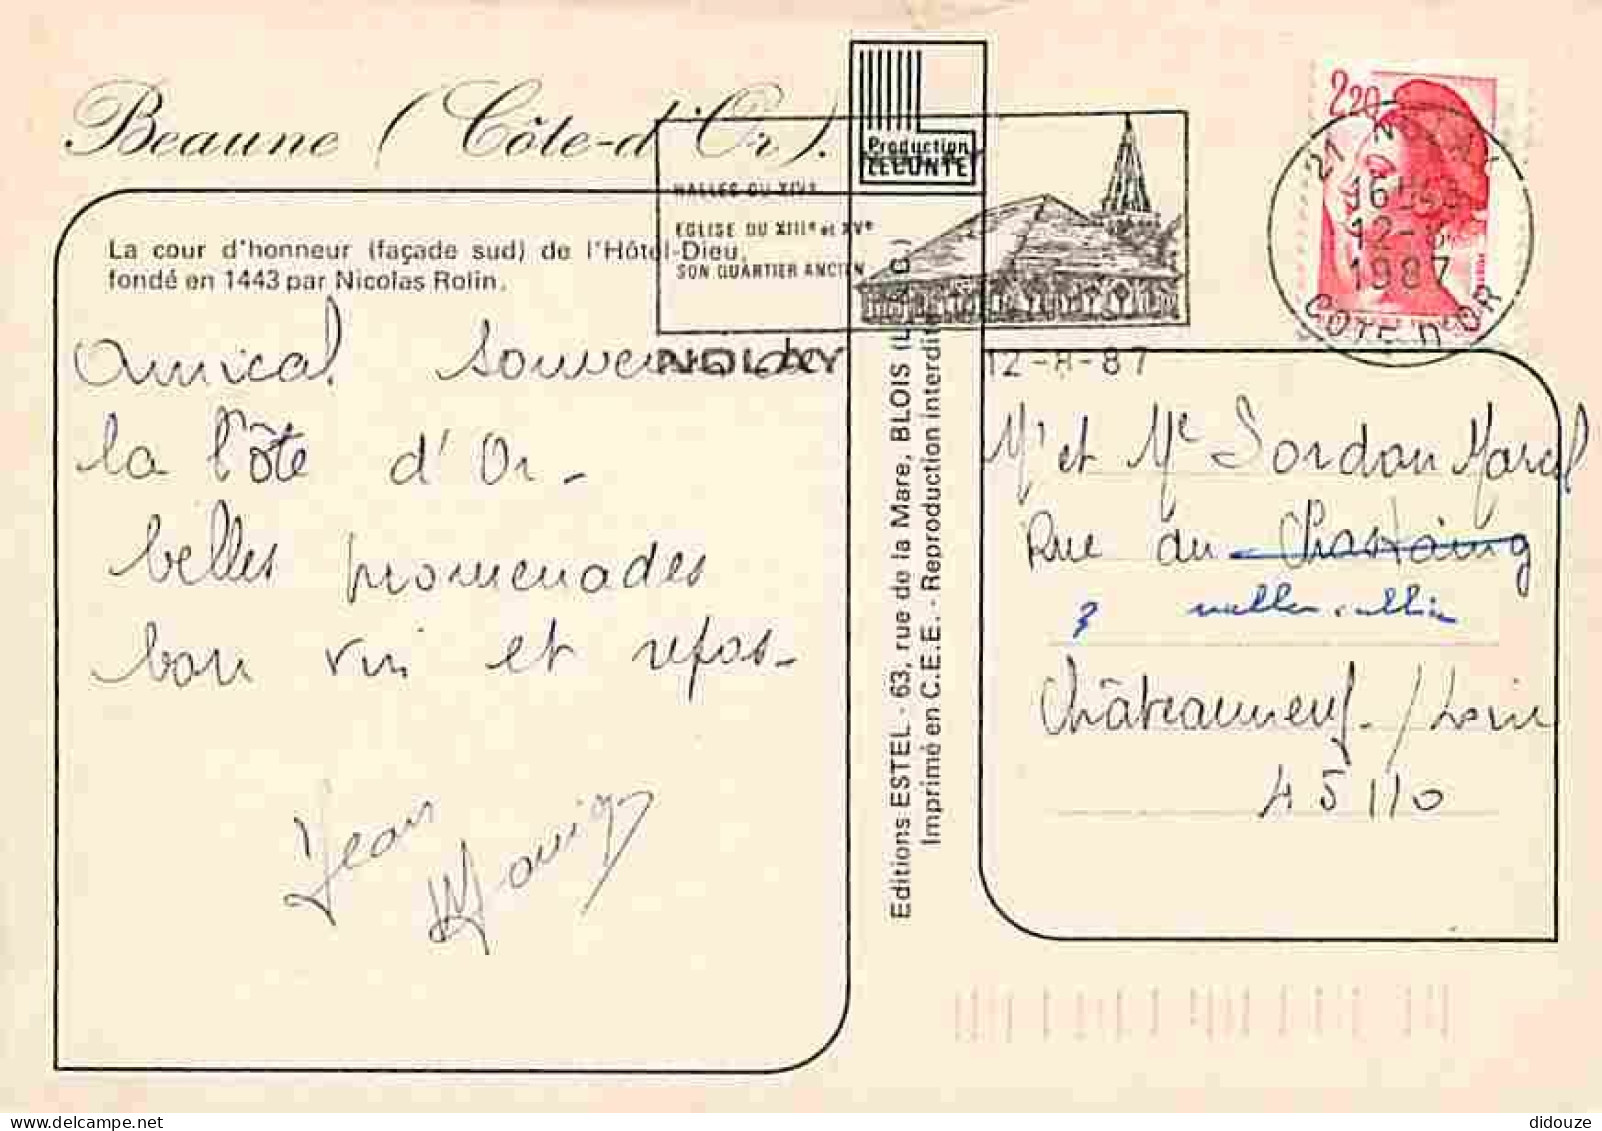 Beaune (Côte-d'Or).
La cour d'honneur (façade sud) de l'Hôtel-Dieu,
fondé en 1443 par Nicolas Rolin.
Amical souvenir de
la Côte d'Or -
belles promenades
bon vin et repos -
Jean
Production
LECONTE
HALLES DU XIVe
EGLISE DU XIIIe et XVe
SON QUARTIER ANCIEN
NOLAY
12-8-87
2,20
21
12-8
1987
COTE D'OR
Editions ESTEL - 63, rue de la Mare, BLOIS (L.
Imprimé en C.E.E. - Reproduction interdite
Mr et Me Jordan Marcel
Rue du Chastaing
Châteauneuf / Loire
45110
didouze